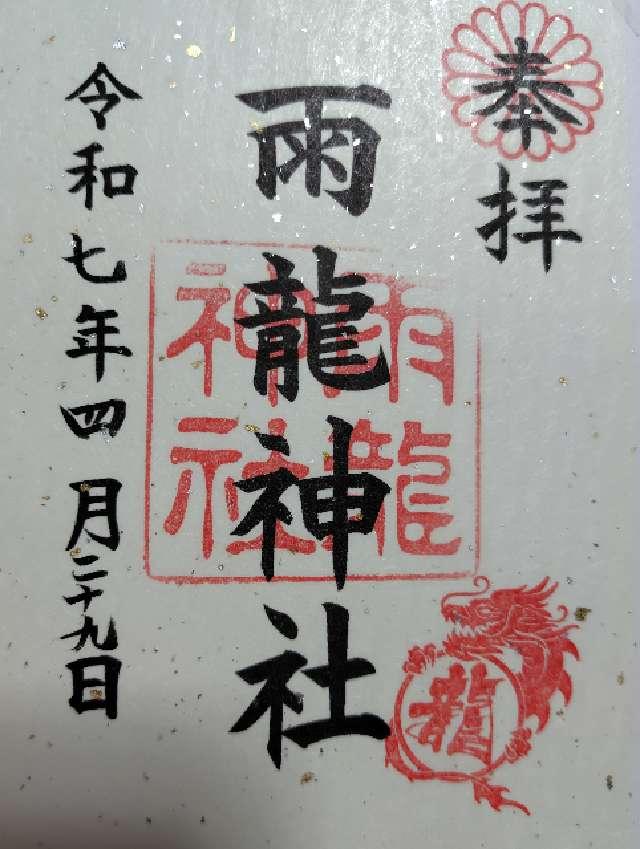 奉拝
雨龍神社
雨龍
神社
龍
令和七年四月二十九日